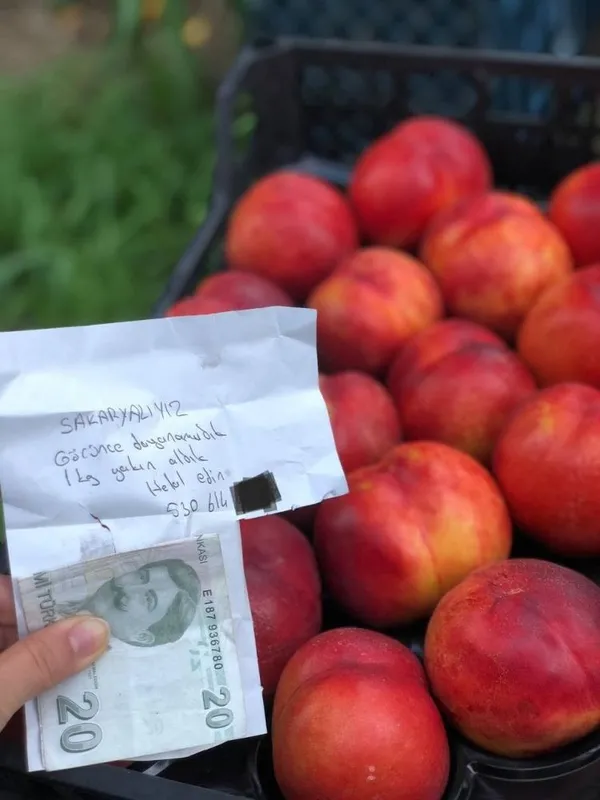 SAKARYALIYIZ
Görünce dayanamadık
1 kg yakın aldık
Helal edin
530 614
NKASI
E187 936780
20
20